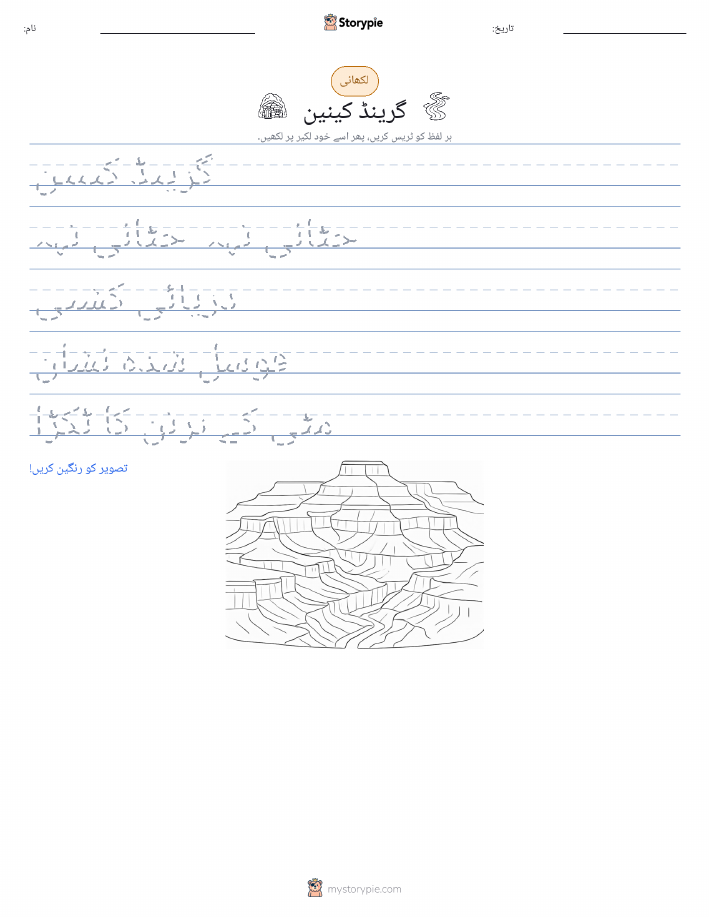 نام:
Storypie
تاریخ:
لکھائی
گرینڈ کینین
ہر لفظ کو ٹریس کریں، پھر اسے خود لکیر پر لکھیں۔
گرینڈ کینین
چٹانی تہہ چٹانی تہہ
دریائی کشتی
فوسل شدہ نشان
مٹی کے برتن کا ٹکڑا
تصویر کو رنگین کریں!
mystorypie.com